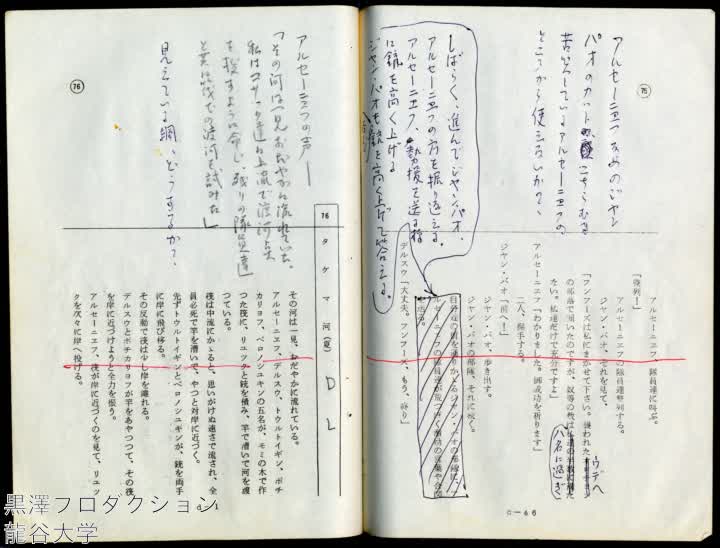 75
アルセーニエフなめのジャン
パオのカット
苦しているアルセーニエフの
ところから使えないか?
しばらく、進んでジャン・パオ、
アルセーニエフの方を振り返える。
アルセーニエフ、
に銃を高く上げる
ジャン・パオも銃を高く上げて答える。
アルセーニエフ、隊員達に叫ぶ。
「整列!」
アルセーニエフの隊員達整列する。
ジャン・パオ、それを見て、
「フンフーズは私にまかせて下さい。襲われた
の部落で聞いたのですが、奴等の数は
八名に過ぎ
ない。私達だけで充分ですよ」
アルセーニエフ「わかりました。御成功を祈ります」
二人、握手する。
ジャン・パオ「前へ!」
ジャン・パオ、歩き出す。
ジャン・パオの部隊、それに続く。
デルスウ「大丈夫、フンフーズ、もう、終り」
C-66
76
アルセーニエフの声──
「その河は一見おだやかに流れていた。
私はコサック達に上流で渡河点
を探すように命じ、残りの隊員達
と共に筏での渡河を試みた」
見えている綱、どうするか?
76 タケマ河(夏) DL
その河は一見、おだやかに流れている。
アルセーニエフ、デルスウ、トウルトイギン、ボチ
カリョフ、ベロノシュキンの五名が、モミの木で作
つた筏に、リュックと銃を積み、竿で漕いで河を渡
つている。
筏は中流にかかると、思いがけぬ速さで流され、全
員必死で竿を漕いで、やつと対岸に近づく。
先ずトウルトイギンとベロノシュキンが、銃を両手
に岸に飛び移る。
その反動で筏は少し岸を離れる。
デルスウとボチカリョフが竿をあやつつて、その筏
を岸に近づけようと全力を振う。
アルセーニエフ、筏が岸に近づくのを見て、リュッ
クを次々に岸へ投げる。
黒澤プロダクション
龍谷大学